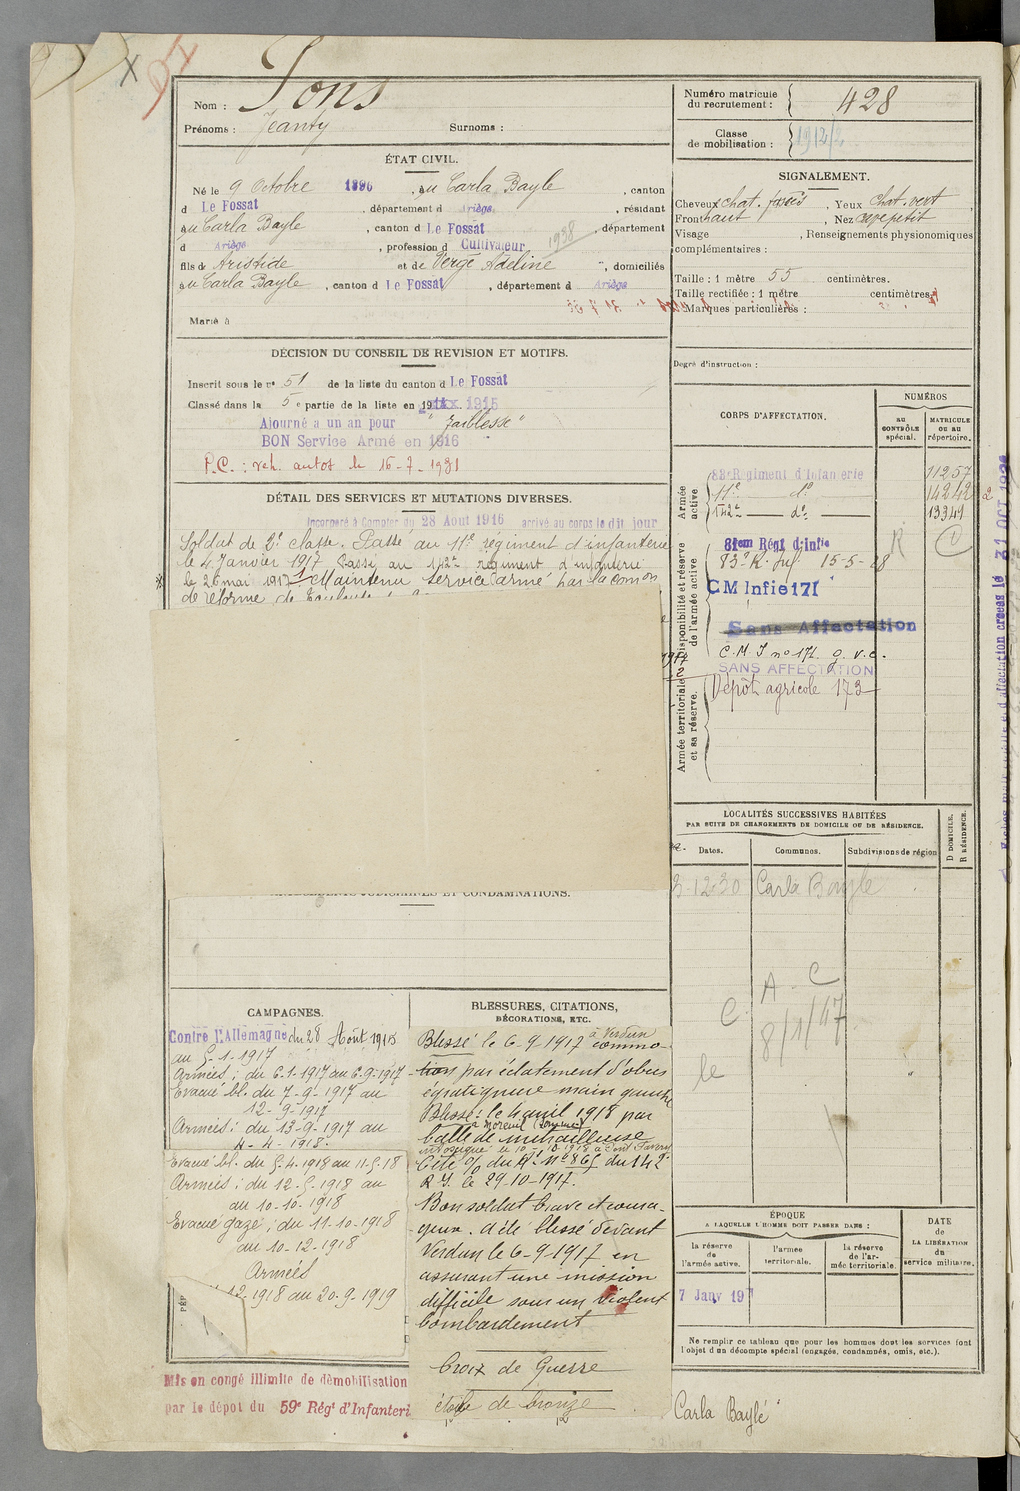 Nom : Sons
Prénoms : Jeanty Surnoms :
Numéro matricule du recrutement : 428
Classe de mobilisation : 1912/2
ÉTAT CIVIL.
Né le 9 Octobre 1896, au Carla Bayle, canton
d Le Fossat, département d Ariège, résidant
au Carla Bayle, canton d Le Fossat, département
d Ariège, profession d Cultivateur 1938
fils de Aristide et de Vergé Adeline, domiciliés
au Carla Bayle, canton d Le Fossat, département d Ariège
Marié à
SIGNALEMENT.
Cheveux chat. foncés, Yeux chat. vert,
Front haut, Nez petit
Visage , Renseignements physionomiques
complémentaires :
Taille : 1 mètre 55 centimètres.
Taille rectifiée : 1 mètre centimètres.
Marques particulières :
Degré d'instruction :
DÉCISION DU CONSEIL DE REVISION ET MOTIFS.
Inscrit sous le n° 51 de la liste du canton d Le Fossat
Classé dans la 5e partie de la liste en 1915
Ajourné a un an pour "faiblesse"
BON Service Armé en 1916
P.C. : veh. autos le 16-7-1931
DÉTAIL DES SERVICES ET MUTATIONS DIVERSES.
Incorporé à Compter du 28 Aout 1916 arrivé au corps le dit jour
Soldat de 2e classe. Passé au 11e régiment d'infanterie
le 4 Janvier 1917 Passé au 142e régiment d'infanterie
le 26 mai 1917. Maintenu service armé par la comon
de réforme de Toulouse
CORPS D'AFFECTATION.
NUMÉROS
AU CONTRÔLE spécial.
MATRICULE OU AU répertoire.
Armée active
83e Régiment d'Infanterie 11257
11e — do — 14242
142e — do — 13349
Disponibilité et réserve de l'armée active
81em Régt d'infie
83e R. Inf. 15-5-28
R C
CM Infie 171
Sans Affectation
C.M.I no 171 g.v.c.
SANS AFFECTATION
Armée territoriale et sa réserve.
Dépôt agricole 173
31 OCT 193
LOCALITÉS SUCCESSIVES HABITÉES
PAR SUITE DE CHANGEMENTS DE DOMICILE OU DE RÉSIDENCE.
Dates. Communes. Subdivisions de région D DOMICILE. R RÉSIDENCE.
3-12-30 Carla Bayle
C A C
le 8/1/47
ET CONDAMNATIONS.
CAMPAGNES.
Contre l'Allemagne du 28 Août 1916
au 5-1-1917
Armées : du 6-1-1917 au 6-9-1917
Evacué bl. du 7-9-1917 au
12-9-1917
Armées : du 13-9-1917 au
4-4-1918.
Evacué bl. du 5.4.1918 au 11.5.18
Armées : du 12.5.1918 au
au 10-10-1918
Evacué gazé ; du 11-10-1918
au 10-12-1918
Armées
12.1918 au 20.9.1919
BLESSURES, CITATIONS,
DÉCORATIONS, ETC.
Blessé le 6-9-1917 à Verdun commo-
tion par éclatement d'obus
égratignure main gauche
Blessé : le 4 avril 1918 par
à Moreuil (Somme)
balle de mitrailleuse
intoxiqué le 10-10-1918 à
Cité O/ du R. No 865 du 142e
R.I. le 29-10-1917.
Bon soldat brave et coura-
geux. A été blessé devant
Verdun le 6-9-1917 en
assurant une mission
difficile sous un violent
bombardement
Croix de Guerre
étoile de bronze
ÉPOQUE
A LAQUELLE L'HOMME DOIT PASSER DANS :
la réserve de l'armée active.
l'armée territoriale.
la réserve de l'armée territoriale.
DATE de LA LIBÉRATION du service militaire.
7 Janv 19
Ne remplir ce tableau que pour les hommes dont les services font
l'objet d'un décompte spécial (engagés, condamnés, omis, etc.).
Mis en congé illimité de démobilisation
par le dépôt du 59e Régt d'Infanteri
Carla Baylé